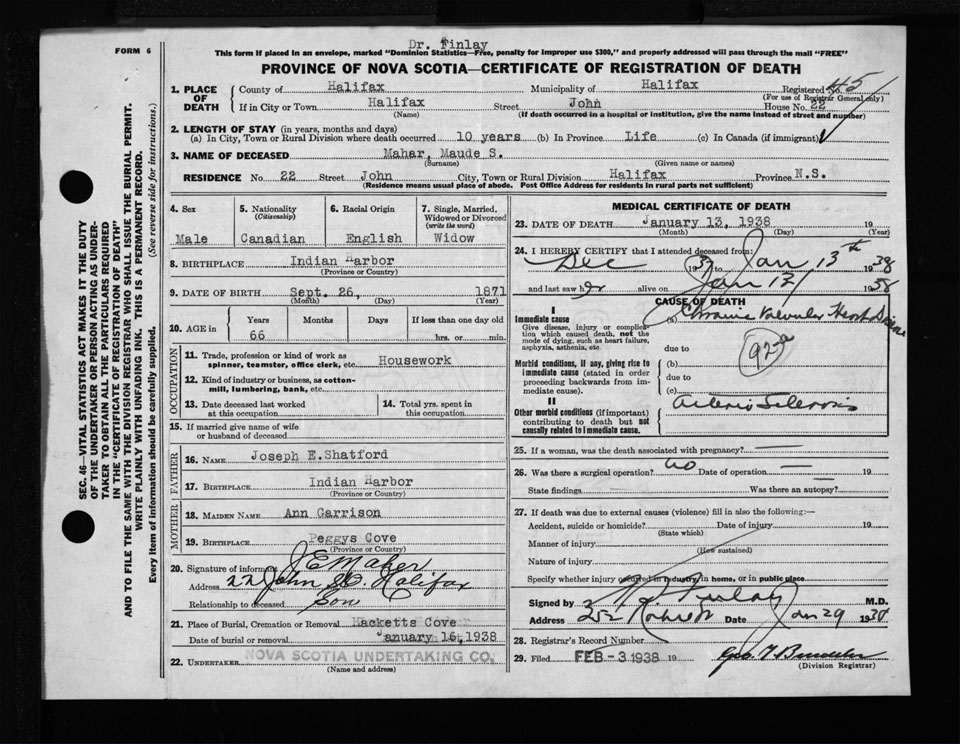 Dr. Finlay
FORM 6
This form if placed in an envelope, marked "Dominion Statistics—Free, penalty for improper use $300," and properly addressed will pass through the mail "FREE"
PROVINCE OF NOVA SCOTIA—CERTIFICATE OF REGISTRATION OF DEATH
SEC. 46—VITAL STATISTICS ACT MAKES IT THE DUTY
OF THE UNDERTAKER OR PERSON ACTING AS UNDER-
TAKER TO OBTAIN ALL THE PARTICULARS REQUIRED
IN THE "CERTIFICATE OF REGISTRATION OF DEATH"
AND TO FILE THE SAME WITH THE DIVISION REGISTRAR WHO SHALL ISSUE THE BURIAL PERMIT.
WRITE PLAINLY WITH UNFADING INK. THIS IS A PERMANENT RECORD.
Every item of information should be carefully supplied. (See reverse side for instructions.)
1. PLACE OF DEATH
County of Halifax Municipality of Halifax Registered No. 45
(For use of Registrar General only)
If in City or Town Halifax Street John House No. 22
(Name) (If death occurred in a hospital or institution, give the name instead of street and number)
2. LENGTH OF STAY (in years, months and days)
(a) In City, Town or Rural Division where death occurred 10 years (b) In Province Life (c) In Canada (if immigrant)
3. NAME OF DECEASED Mahar, Maude S.
(Surname) (Given name or names)
RESIDENCE No. 22 Street John City, Town or Rural Division Halifax Province N.S.
(Residence means usual place of abode. Post Office Address for residents in rural parts not sufficient)
4. Sex
Male
5. Nationality
(Citizenship)
Canadian
6. Racial Origin
English
7. Single, Married,
Widowed or Divorced
(write the word)
Widow
8. BIRTHPLACE Indian Harbor
(Province or Country)
9. DATE OF BIRTH Sept. 26, 1871
(Month) (Day) (Year)
10. AGE in
Years Months Days If less than one day old
66 hrs. or min.
OCCUPATION
11. Trade, profession or kind of work as
spinner, teamster, office clerk, etc. Housework
12. Kind of industry or business, as cotton-
mill, lumbering, bank, etc.
13. Date deceased last worked
at this occupation
14. Total yrs. spent in
this occupation
15. If married give name of wife
or husband of deceased
FATHER
16. NAME Joseph E.Shatford
17. BIRTHPLACE Indian Harbor
(Province or Country)
MOTHER
18. MAIDEN NAME Ann Garrison
19. BIRTHPLACE Peggys Cove
(Province or Country)
20. Signature of informant J E Maher
Address 22 John St. Halifax
Relationship to deceased Son
21. Place of Burial, Cremation or Removal Hacketts Cove
Date of burial or removal January 16, 1938
22. UNDERTAKER NOVA SCOTIA UNDERTAKING CO.
(Name and address)
MEDICAL CERTIFICATE OF DEATH
23. DATE OF DEATH January 13, 1938 19
(Month) (Day) (Year)
24. I HEREBY CERTIFY that I attended deceased from:
Dec 1937 to Jan 13th 1938
and last saw her alive on Jan 12/ 1938
CAUSE OF DEATH
I
Immediate cause
Give disease, injury or complica-
tion which caused death, not the
mode of dying, such as heart failure,
asphyxia, asthenia, etc.
(a) Chronic Valvular Heart Disease
due to
Morbid conditions, if any, giving rise to
immediate cause (stated in order
proceeding backwards from im-
mediate cause).
(b)
due to
(c)
II
Other morbid conditions (if important)
contributing to death but not
causally related to immediate cause.
Arterio Sclerosis
25. If a woman, was the death associated with pregnancy? —
26. Was there a surgical operation? no Date of operation — 19
State findings Was there an autopsy?
27. If death was due to external causes (violence) fill in also the following:—
Accident, suicide or homicide? Date of injury 19
(State which)
Manner of injury
(How sustained)
Nature of injury
Specify whether injury occurred in industry, in home, or in public place
Signed by Finlay M.D.
Address 252 Date Jan 29 1938
28. Registrar's Record Number
29. Filed FEB -3 1938 19
(Division Registrar)